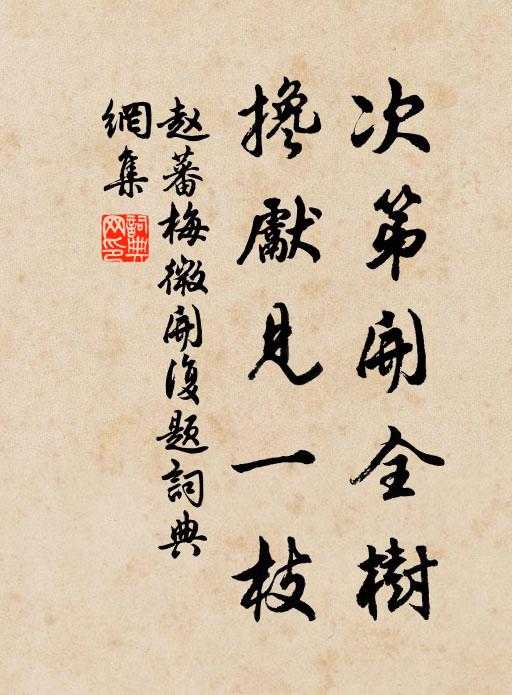 次第開全樹
攙獻見一枝
赵蕃梅微開復題詞典
網集
詞典网印